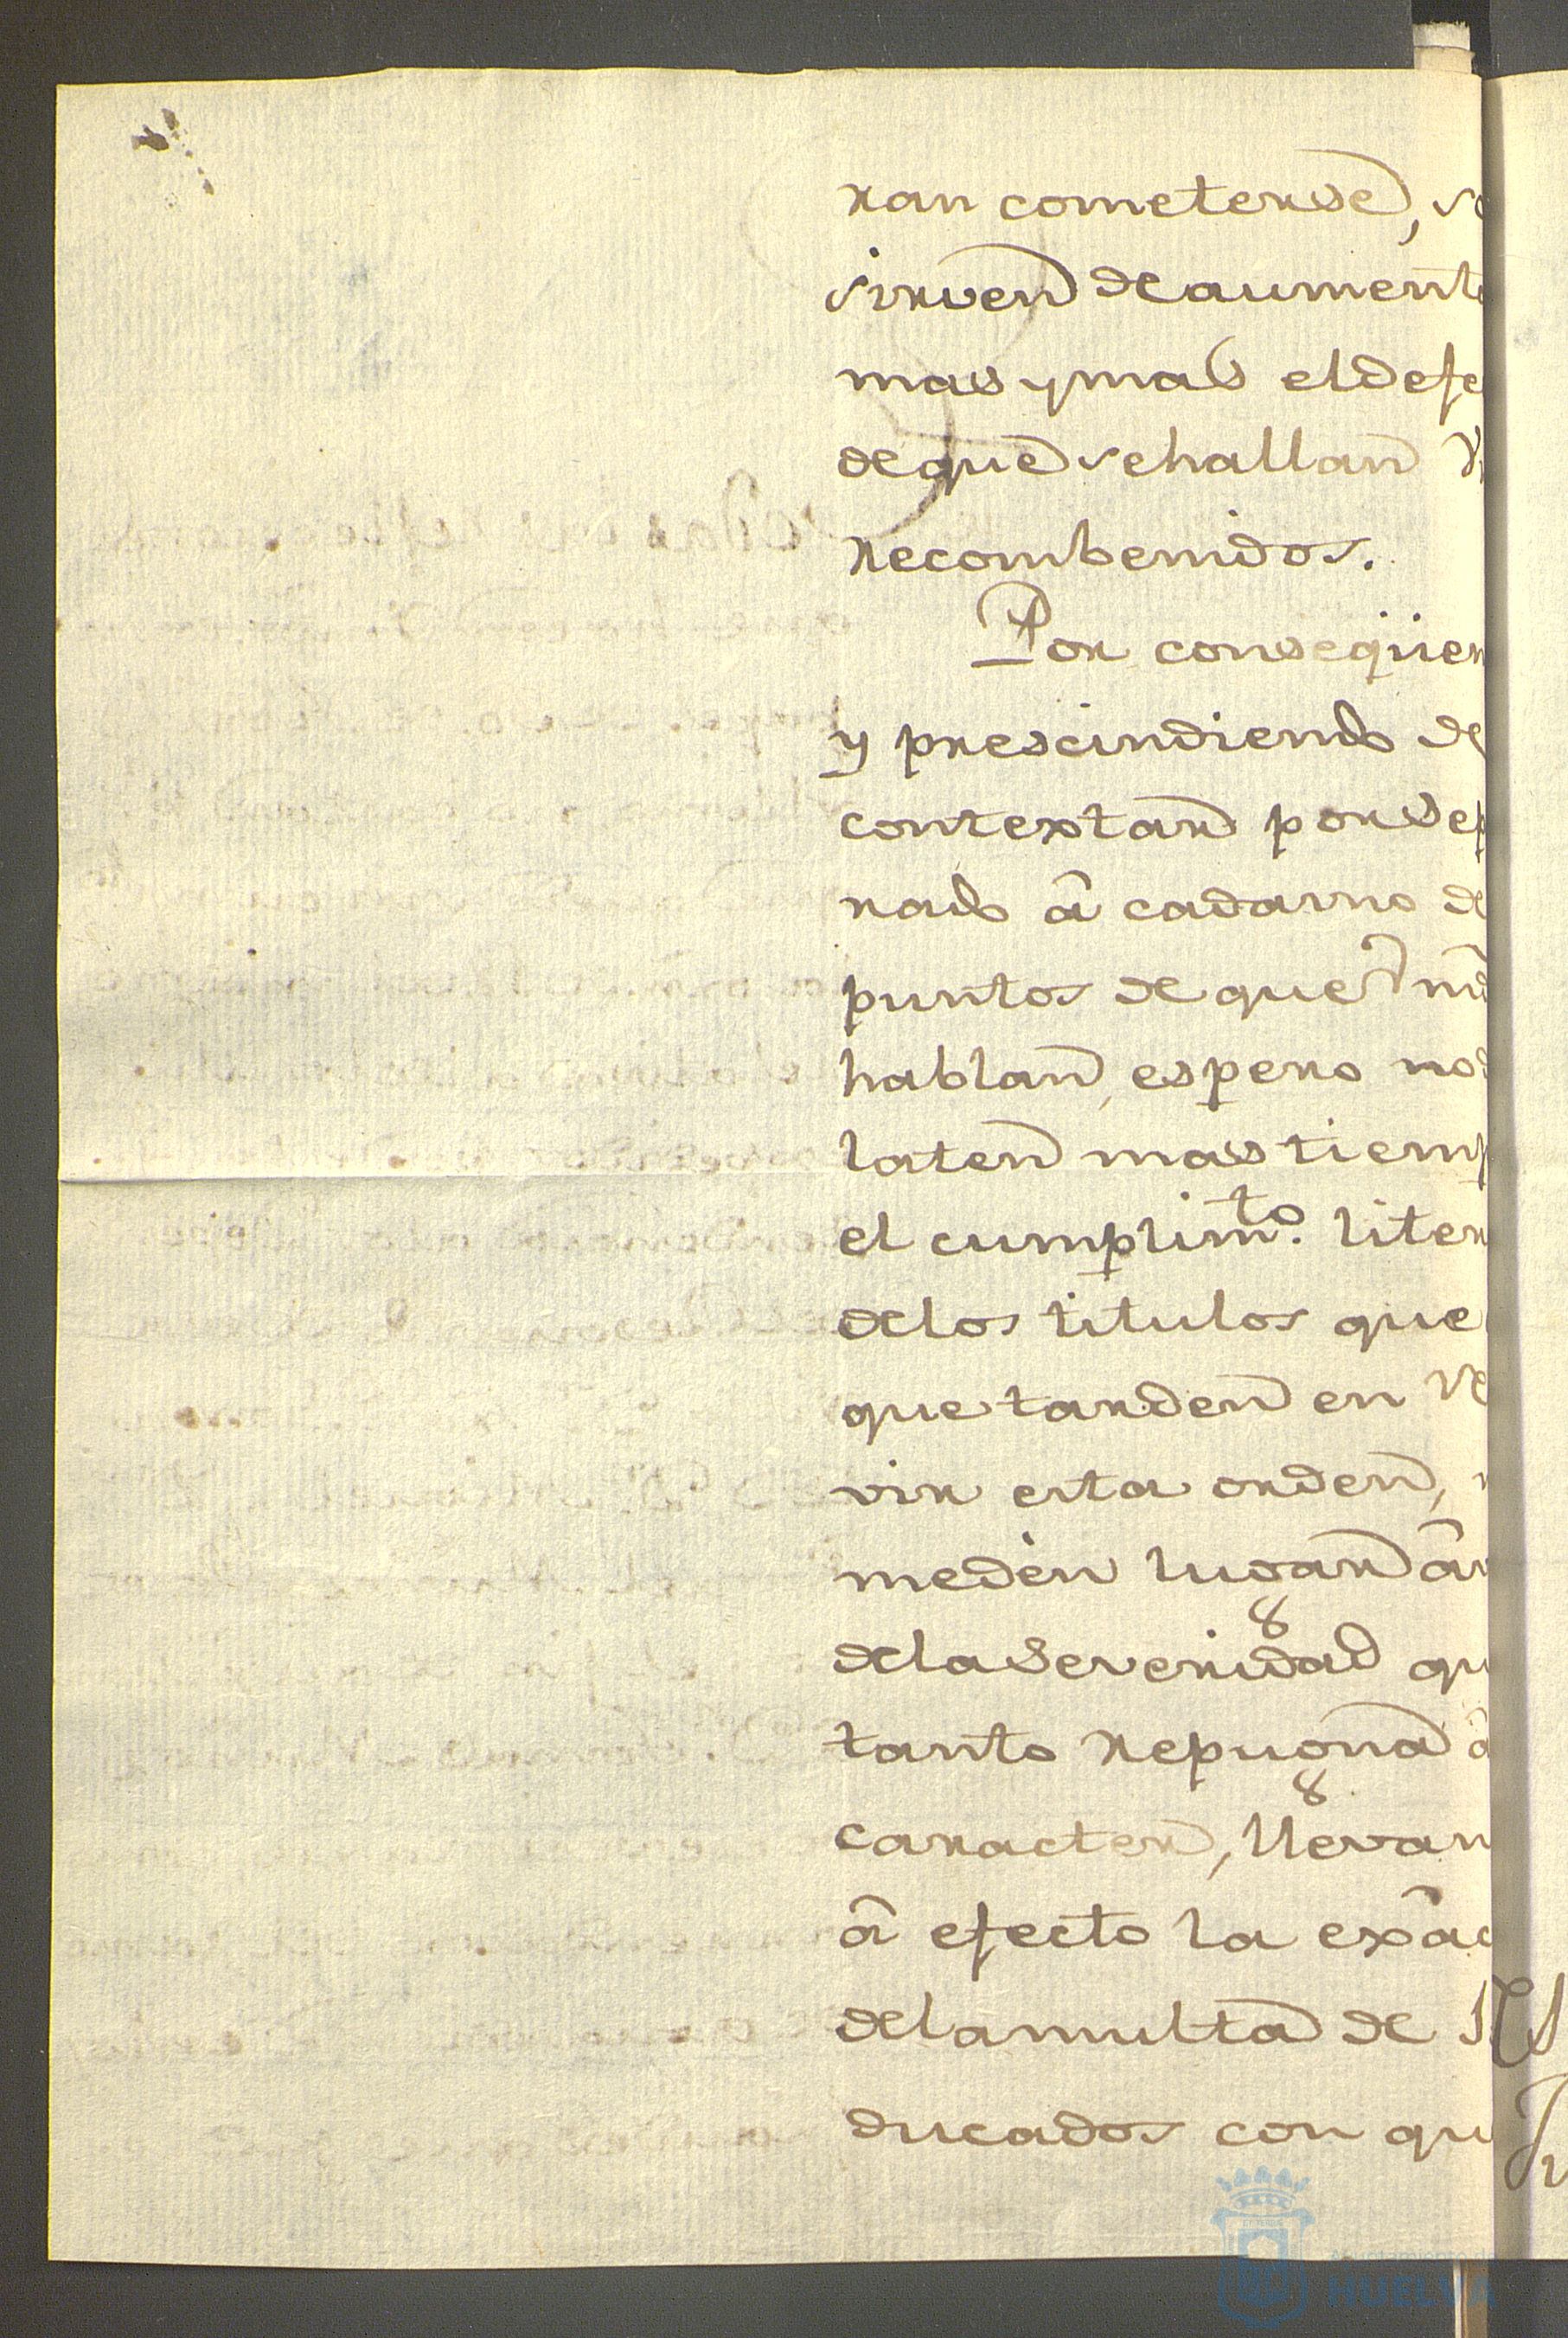 ran cometerse, se
sirven de aument
mas y mas el defe
de que se hallan
recombenidos.
Por conseqüen
y prescindiendo de
contextar por sep
rado â cada uno de
puntos de que
hablan, espero no
laten mas tiemp
el cumplim.to liter
de los titulos que
que tarden en re
vir esta orden,
me den lugar â
de la severidad qu
tanto repugna â
caracter, llevan
â efecto la exâc
de la multa de
ducados con qu
Ayuntamiento de
HUELVA